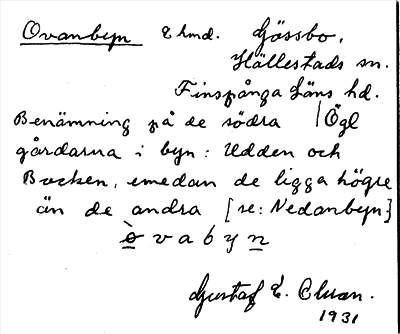 Ovanbyn Ehmd. Gässbo,
Hällestads sn.
Finspånga läns hd.
Benämning på de södra / Ögl
gårdarna i byn: Udden och
Backen, emedan de ligga högre
än de andra [se: Nedanbyn]
òvabyn
Gustaf E. Clwan.
1931